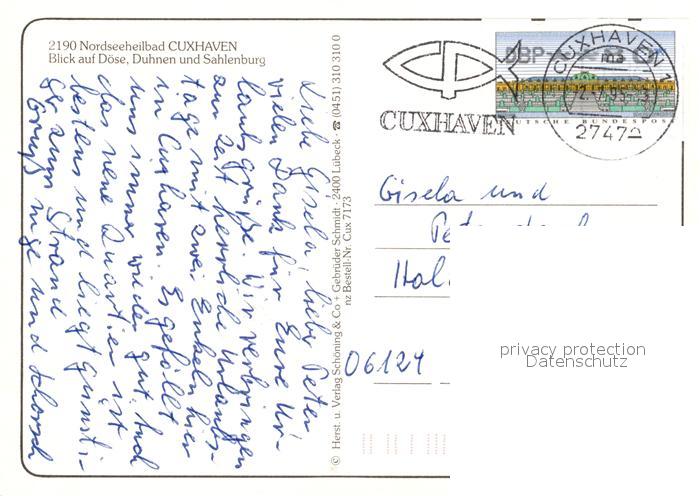 2190 Nordseeheilbad CUXHAVEN
Blick auf Döse, Duhnen und Sahlenburg
Liebe Gisela, lieber Peter
vielen Dank für Eure Ur-
laubsgrüße. Wir verbringen
zur Zeit herrliche Urlaubs-
tage mit zwei Enkeln hier
in Cuxhaven. Es gefällt
uns immer wieder gut. Auch
das neue Quartier ist
bestens und liegt günsti-
ger zum Strand
Gruß Inge und Schorsch
© Herst. u. Verlag Schöning & Co + Gebrüder Schmidt · 2400 Lübeck · ☎ (0451) 310 310 0
nz Bestell-Nr. Cux 7173
CUXHAVEN
DBP
CUXHAVEN 1
27472
DEUTSCHE BUNDESPOST
Gisela und
Hal
06124
privacy protection
Datenschutz